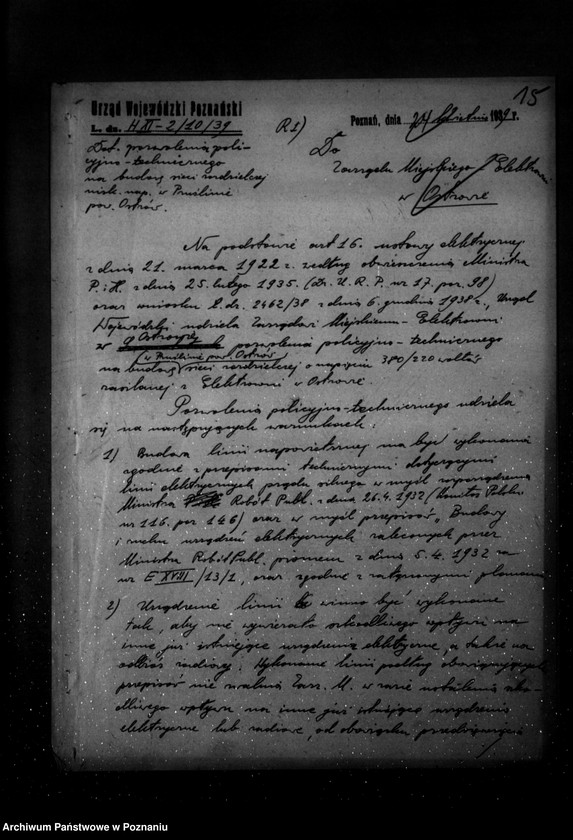 15
Urząd Wojewódzki Poznański
L. dz. H XI-2/10/39
R1)
Poznań, dnia 24 kwietnia 1939 r.
Dot. pozwolenia poli-
cyjno-technicznego
na budowę sieci rozdzielczej
nisk. nap. w Pruślinie
pow. Ostrów.
Do
Zarządu Miejskiego Elektrowni
w Ostrowie
Na podstawie art 16. ustawy elektrycznej
z dnia 21. marca 1922 r. według obwieszczenia Ministra
P. i H. z dnia 25. lutego 1935. (Dz. U. R. P. nr 17. poz. 98)
oraz wniosku L. dz. 2462/38 z dnia 6. grudnia 1938 r., Urząd
Wojewódzki udziela Zarządowi Miejskiemu - Elektrowni
w Ostrowie pozwolenia policyjno-technicznego
w Pruślinie pow. Ostrów
na budowę sieci rozdzielczej o napięciu 380/220 woltów
zasilanej z Elektrowni w Ostrowie.
Pozwolenia policyjno-technicznego udziela
się na następujących warunkach:
1) Budowa linii napowietrznej ma być wykonana
zgodnie z przepisami technicznymi dotyczącymi
linii elektrycznych prądu silnego w myśl rozporządzenia
Ministra Robót Publ. z dnia 26.4.1932 (Monitor Polski
nr 116. poz 146) oraz w myśl przepisów „Budowy
i ruchu urządzeń elektrycznych zaleconych przez
Ministra Robót Publ. pismem z dnia 5.4.1932 za
nr E XVIII/13/1, oraz zgodnie z załączonymi planami
2) Urządzenie linii winno być wykonane
tak, aby nie wywierało szkodliwego wpływu na
inne już istniejące urządzenia elektryczne, a także na
odbiór radiowy. Wykonanie linii podług obowiązujących
przepisów nie zwalnia Zarz. M. w razie ustalenia szko-
dliwego wpływu na inne już istniejące urządzenia
elektryczne lub radiowe, od obowiązku przedsięwzięcia
Archiwum Państwowe w Poznaniu